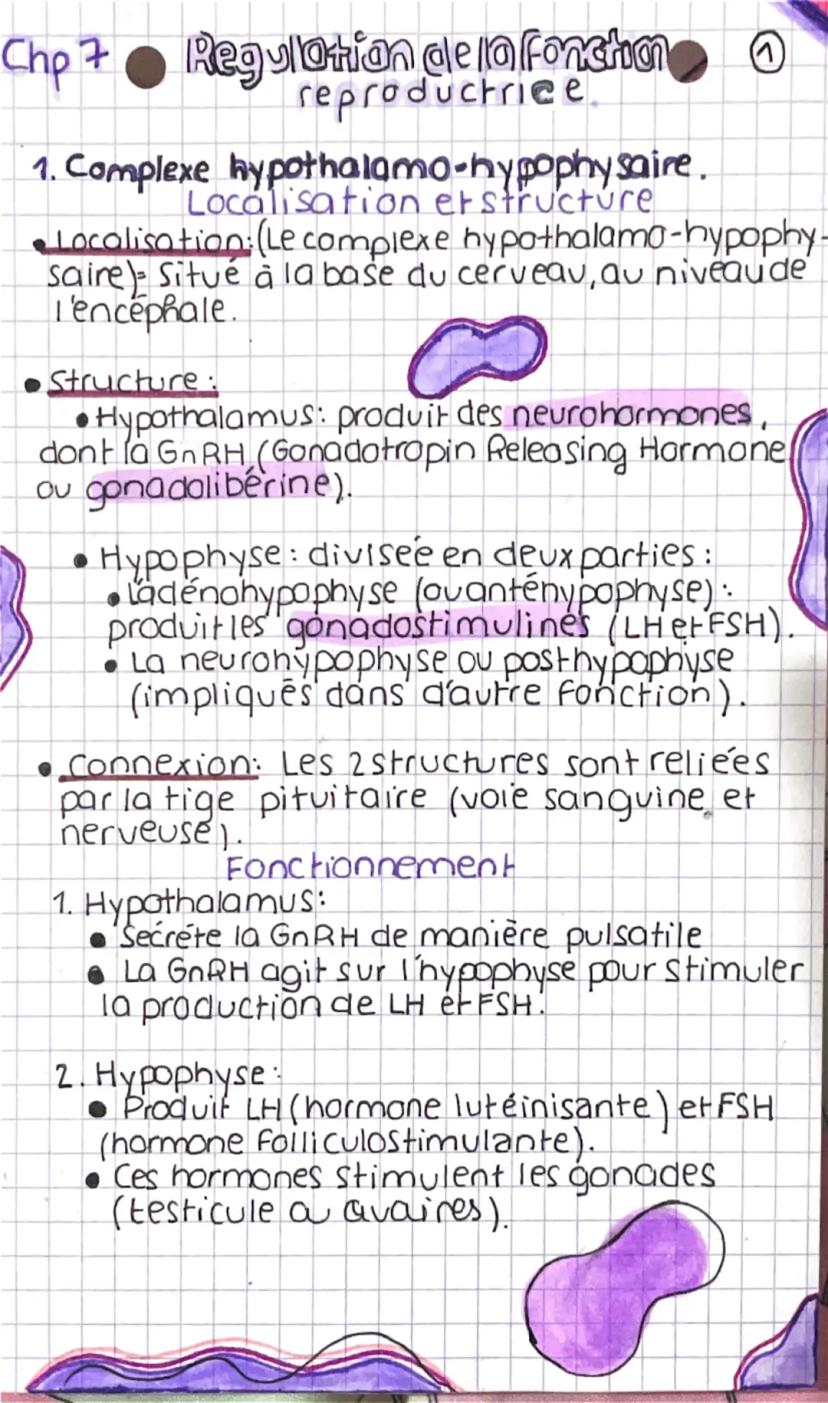 Chp 7 Regulation de la fonction ①
reproductrice
1. Complexe hypothalamo-hypophysaire.
Localisation et structure
• Localisation: (Le complexe hypothalamo-hypophy-
saire)= Situé à la base du cerveau, au niveau de
l'encéphale.
• Structure :
• Hypothalamus: produit des neurohormones,
dont la GnRH (Gonadotropin Releasing Hormone
ou gonadolibérine).
• Hypophyse : divisée en deux parties :
• L'adénohypophyse (ou antéhypophyse) :
produit les gonadostimulines (LH et FSH).
• La neurohypophyse ou posthypophyse
(impliqués dans d'autre fonction).
• Connexion: Les 2 structures sont reliées
par la tige pituitaire (voie sanguine et
nerveuse).
Fonctionnement
1. Hypothalamus:
• Secrète la GnRH de manière pulsatile
• La GnRH agit sur l'hypophyse pour stimuler
la production de LH et FSH.
2. Hypophyse :
• Produit LH (hormone lutéinisante) et FSH
(hormone folliculostimulante).
• Ces hormones stimulent les gonades
(testicule ou ovaires).